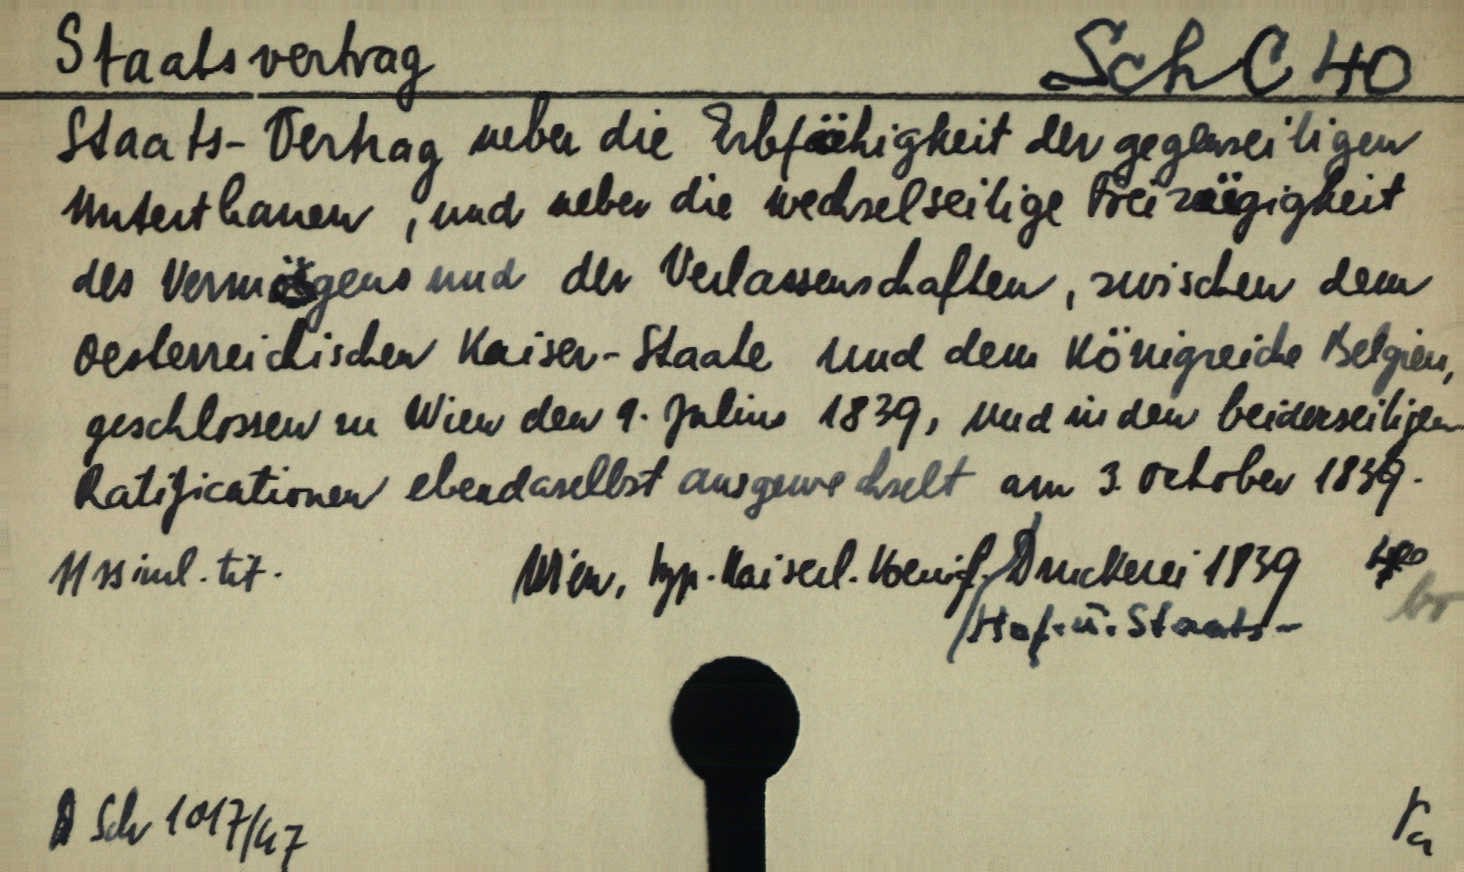 Staatsvertrag Sch C 40
Staats-Vertrag ueber die Erbfähigkeit der gegenseitigen
Unterthanen, und ueber die wechselseitige Freizügigkeit
des Vermögens und der Verlassenschaften, zwischen dem
oesterreichischen Kaiser-Staate und dem Königreiche Belgien,
geschlossen zu Wien den 9. Julius 1839, und in den beiderseitigen
Ratificationen ebendaselbst ausgewechselt am 3. October 1839.
11 SS inkl. tit. Wien, typ. Kaiserl. Koenigl. Druckerei 1839 4°
Hof- u. Staats-
Sch 1017/47